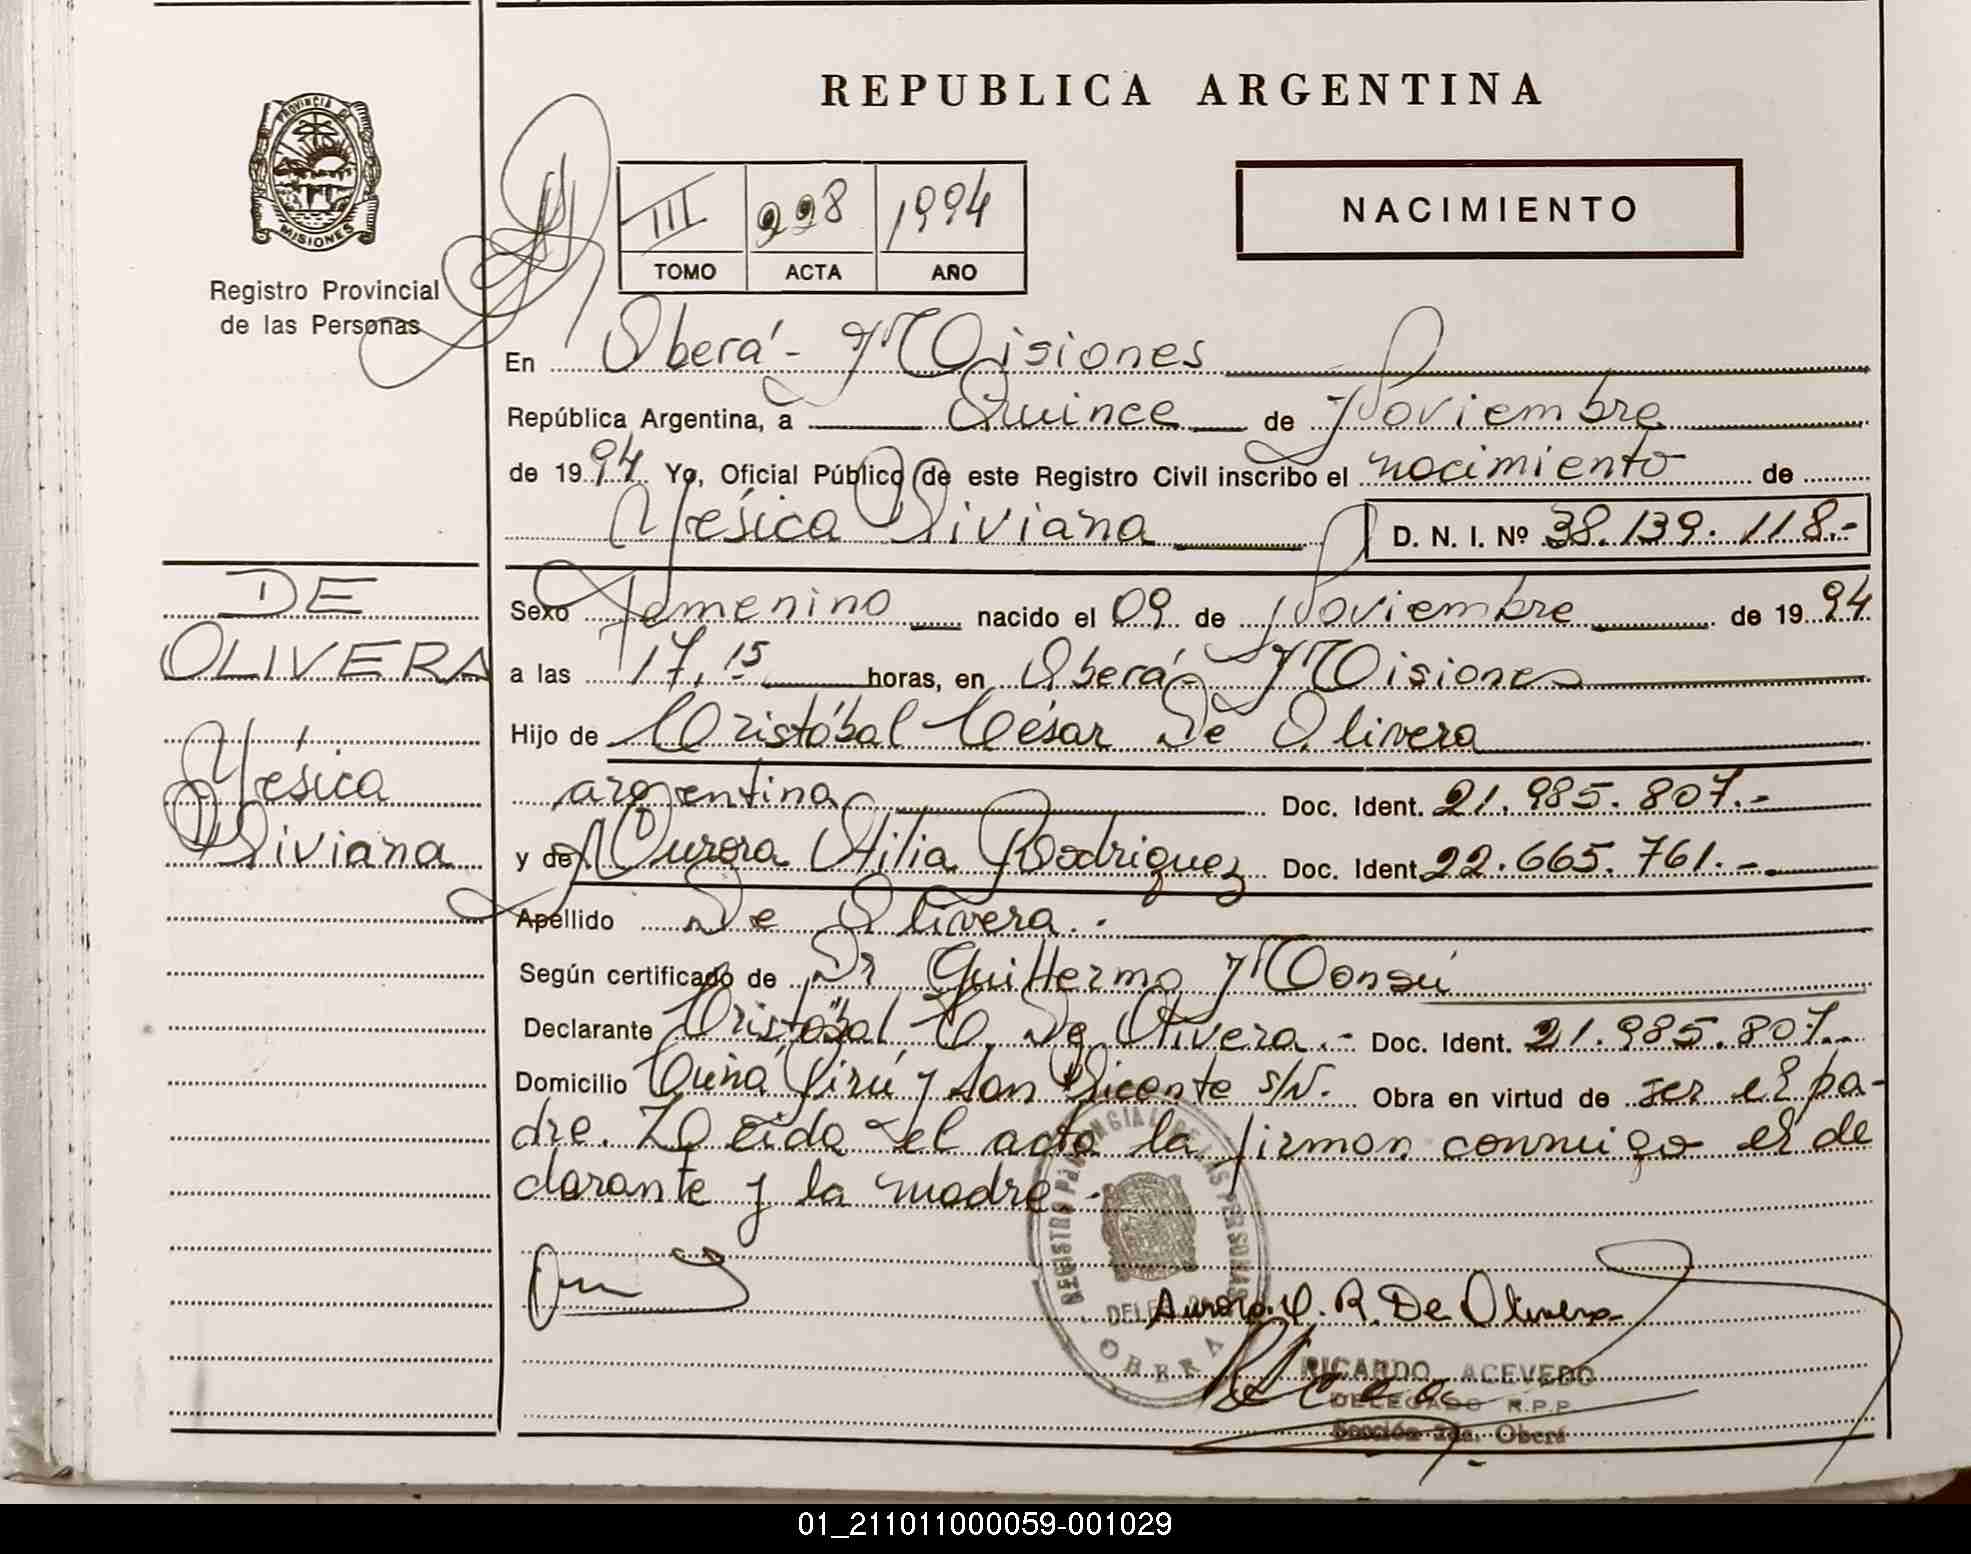 REPUBLICA ARGENTINA
PROVINCIA DE
MISIONES
Registro Provincial
de las Personas
III 228 1994
TOMO ACTA AÑO
NACIMIENTO
En Oberá - Misiones
República Argentina, a Quince de Noviembre
de 1994 Yo, Oficial Público de este Registro Civil inscribo el nacimiento de
Yésica Viviana D. N. I. Nº 38.139.118.-
DE
OLIVERA
Yésica
Viviana
Sexo Femenino nacido el 09 de Noviembre de 1994
a las 17,15 horas, en Oberá - Misiones
Hijo de Cristóbal César De Olivera
argentina Doc. Ident. 21.985.807.-
y de Aurora Otilia Rodriguez Doc. Ident. 22.665.761.-
Apellido De Olivera.-
Según certificado de Dr Guillermo Monsú
Declarante Cristóbal C. De Olivera.- Doc. Ident. 21.985.807.-
Domicilio Cuñá Pirú y San Vicente s/N. Obra en virtud de ser el pa-
dre. Leída el acta la firman conmigo el de
clarante y la madre.-
REGISTRO PROVINCIAL DE LAS PERSONAS
OBERA
Aurora O. R. De Olivera
RICARDO ACEVEDO
DELEGADO R.P.P.
Sección 2da. Oberá
01_211011000059-001029